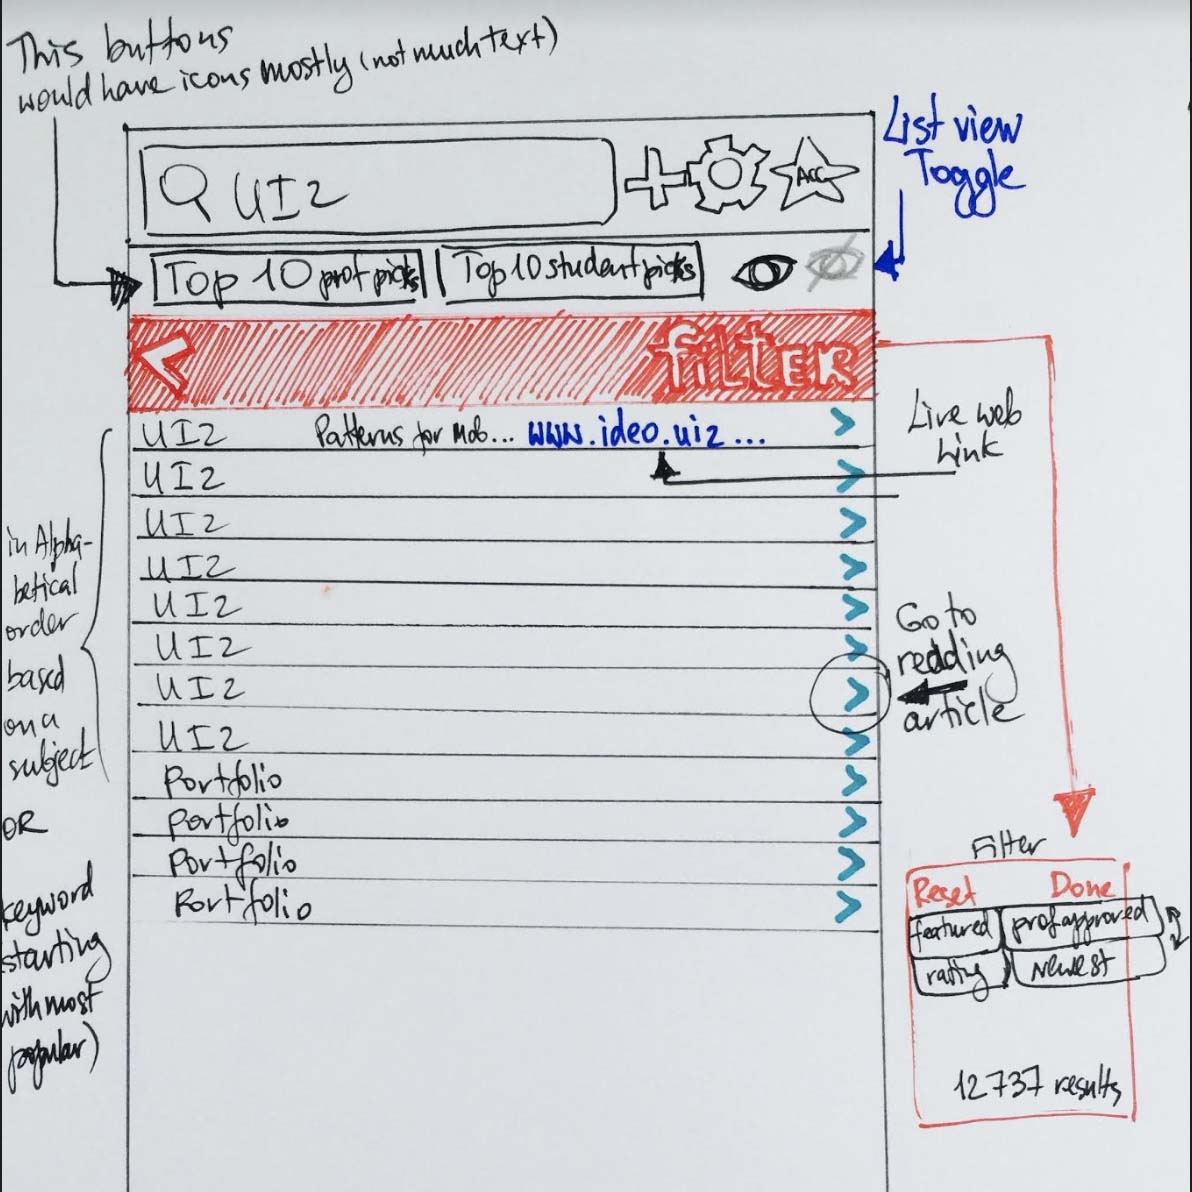 This buttons
would have icons mostly (not much text)
List view
Toggle
UI2
ACC
Top 10 prof picks
Top 10 student picks
filter
UI2 Patterns for Mob... www.ideo.ui2...
Live web
Link
UI2
UI2
UI2
UI2
UI2
UI2
UI2
Portfolio
Portfolio
Portfolio
Portfolio
in Alpha-
betical
order
based
on a
subject
OR
keyword
starting
with most
popular)
Go to
reading
article
Filter
Reset Done
featured prof approved
rating Newest
12737 results